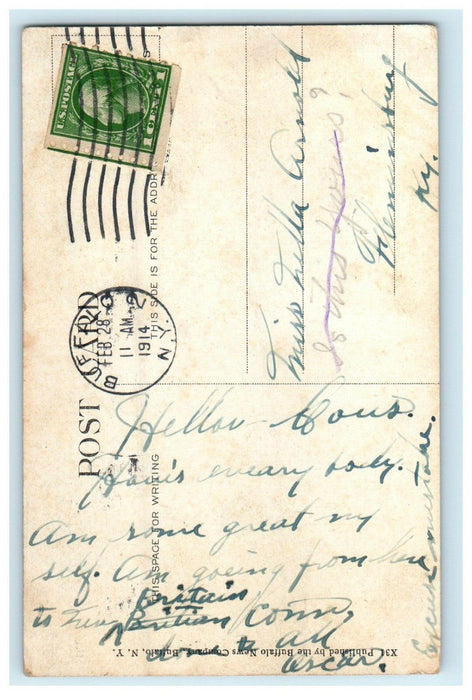 U.S. POSTAGE
1 CENT 1
BUFFALO
FEB 28
11 AM
1914
N.Y.
POST CARD
THIS SPACE FOR WRITING
THIS SIDE IS FOR THE ADDRESS
Miss Lilla Arnold
Is this yours?
Flemingsburg
Ky.
Hellow Cous.
How's eveary body.
Am some great my
self. Am going from here
to New Britian Conn.
Britain
love to All
Oscar.
Excuse mustake.
X31 Published by the Buffalo News Company, Buffalo, N. Y.